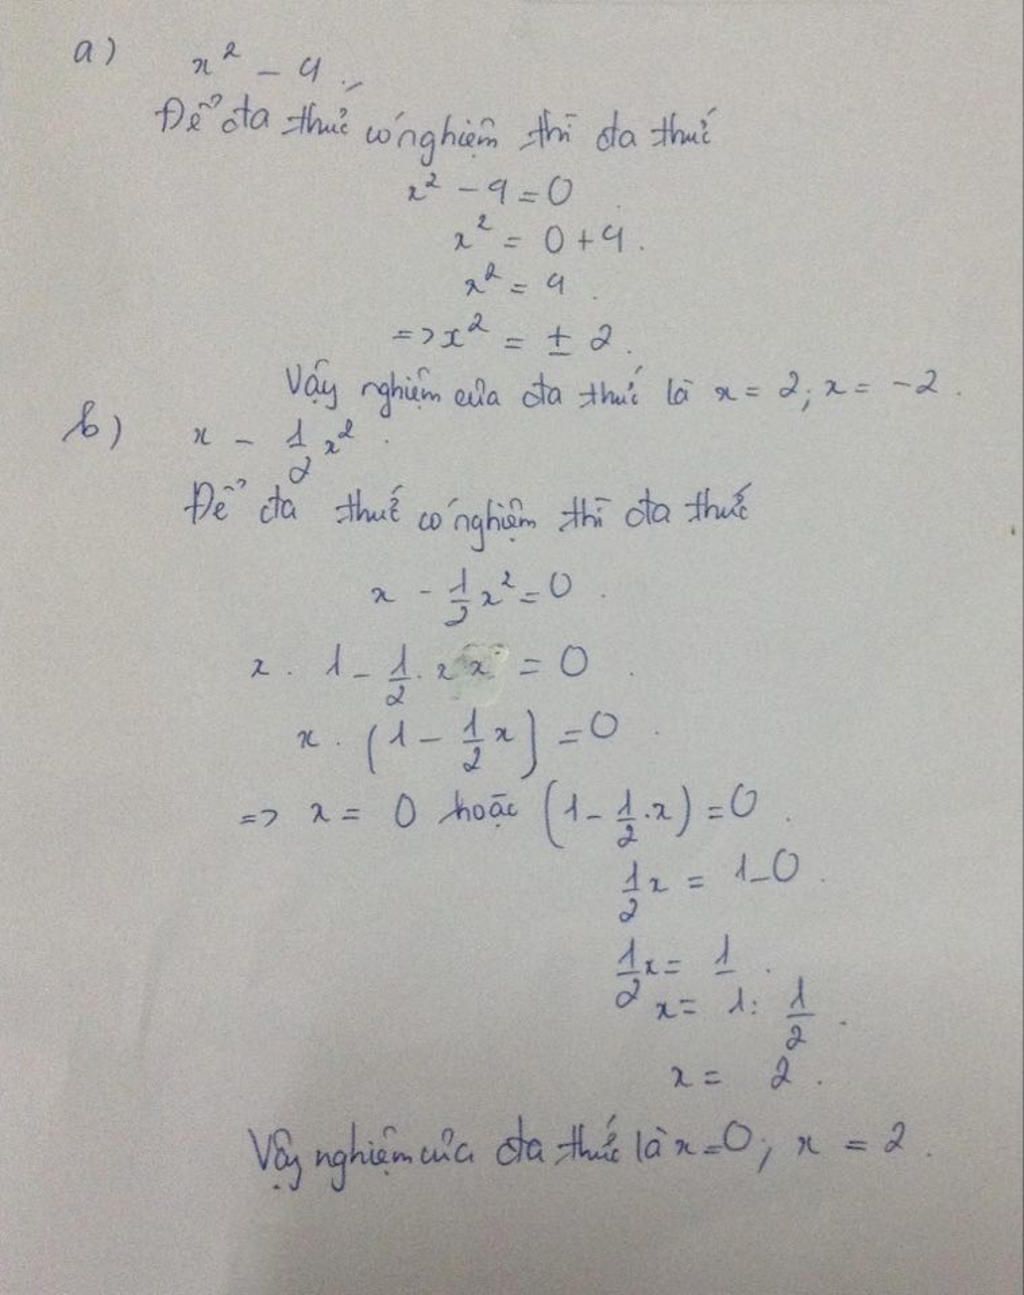 a) x² - 4.
Để đa thức có nghiệm thì đa thức
x² - 4 = 0
x² = 0 + 4.
x² = 4.
=> x² = ± 2.
Vậy nghiệm của đa thức là x = 2; x = -2.
b) x - 1/2 x².
Để đa thức có nghiệm thì đa thức
x - 1/2 x² = 0.
x . 1 - 1/2 . x x = 0.
x . (1 - 1/2 x) = 0.
=> x = 0 hoặc (1 - 1/2 . x) = 0.
1/2 x = 1 - 0.
1/2 x = 1.
x = 1 : 1/2.
x = 2.
Vậy nghiệm của đa thức là x = 0; x = 2.